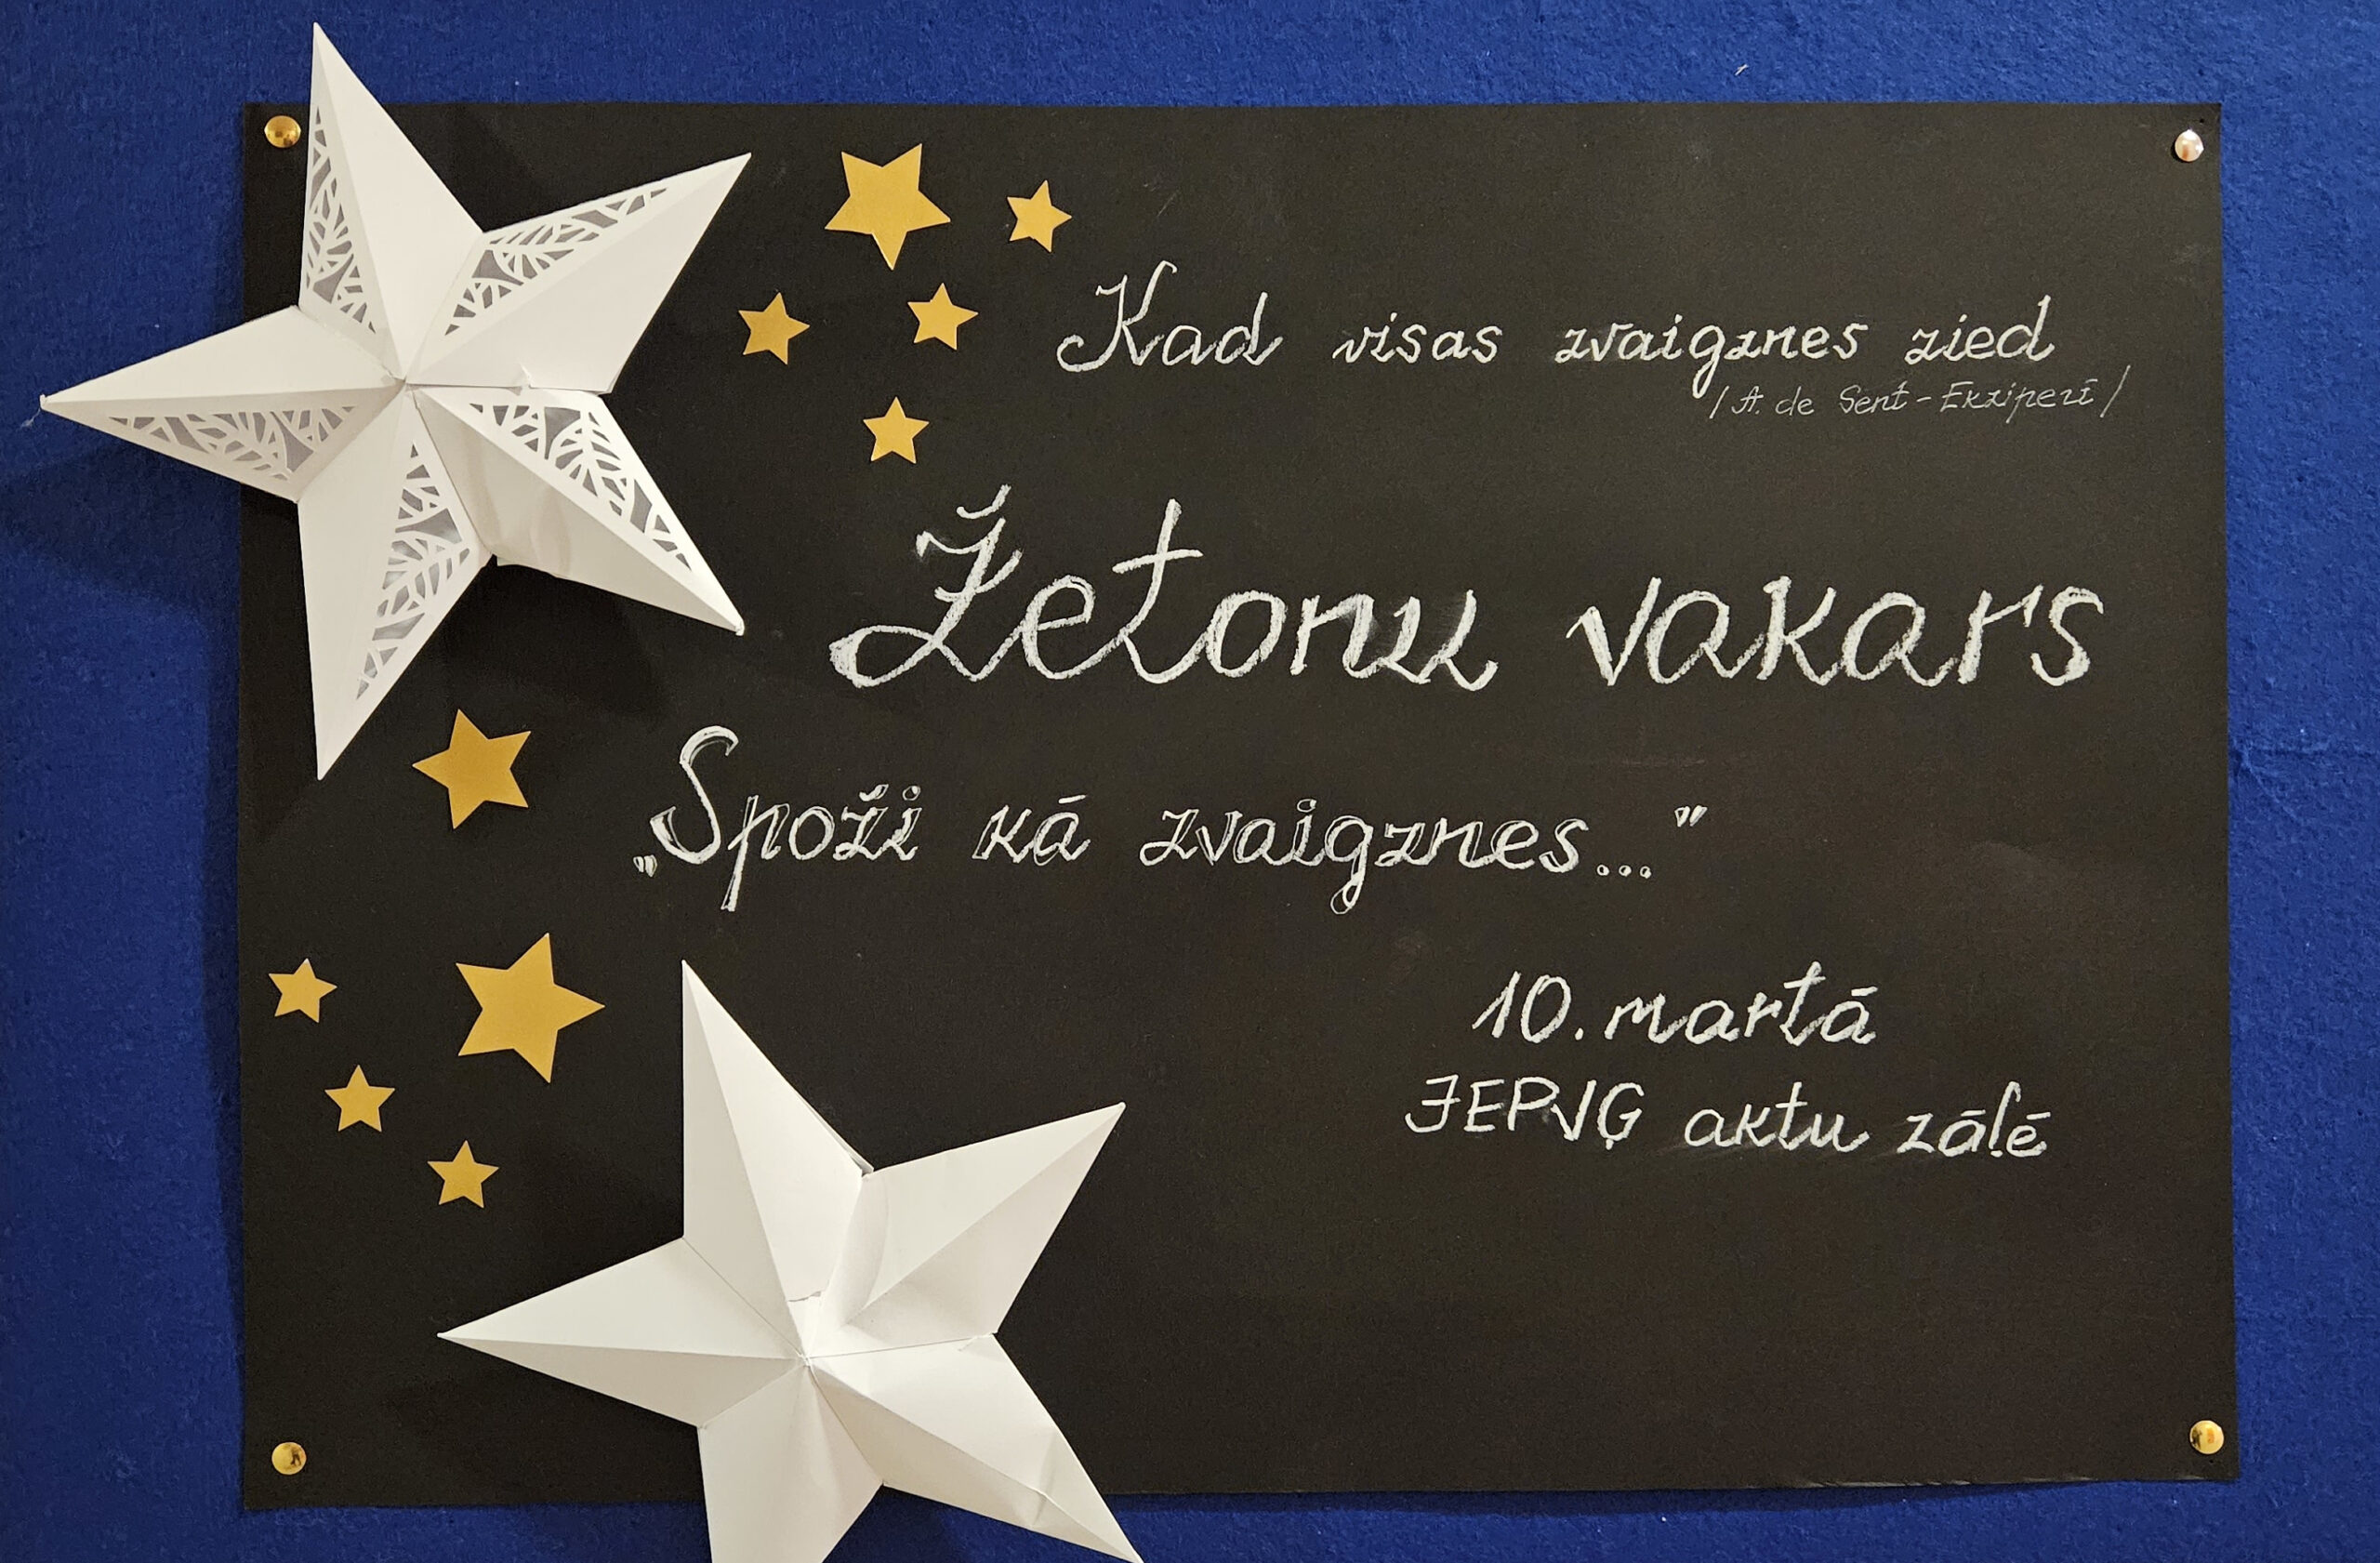 Kad visas zvaigznes zied
/A. de Sent-Ekziperī/
Žetonu vakars
„Spoži kā zvaigznes..."
10. martā
JEPVĢ aktu zālē